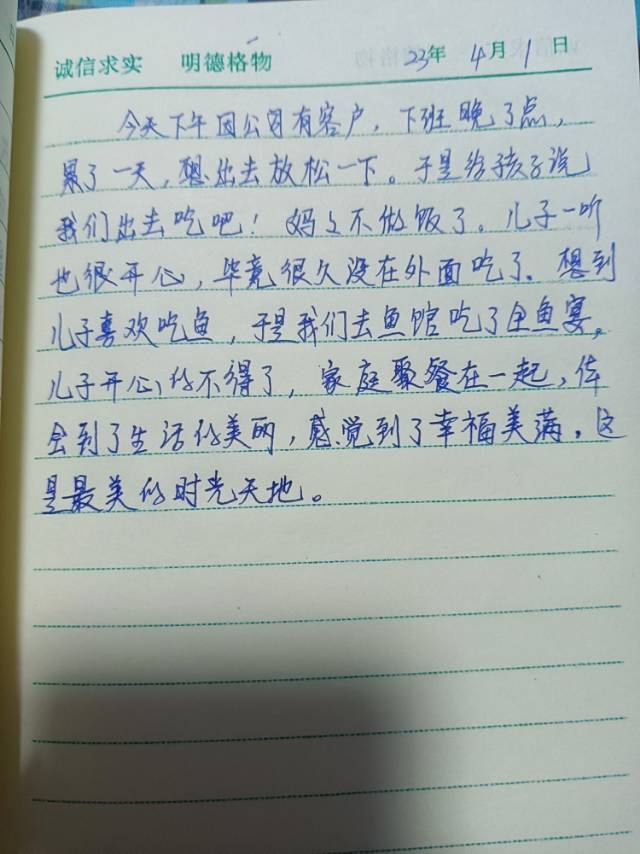 诚信求实 明德格物 23年 4月1日
今天下午因公司有客户，下班晚了点，
累了一天，想出去放松一下。于是给孩子说
我们出去吃吧！妈妈不做饭了。儿子一听
也很开心，毕竟很久没在外面吃了。想到
儿子喜欢吃鱼，于是我们去鱼馆吃了全鱼宴，
儿子开心的不得了，家庭聚餐在一起，体
会到了生活的美丽，感觉到了幸福美满。这
是最美的时光天地。